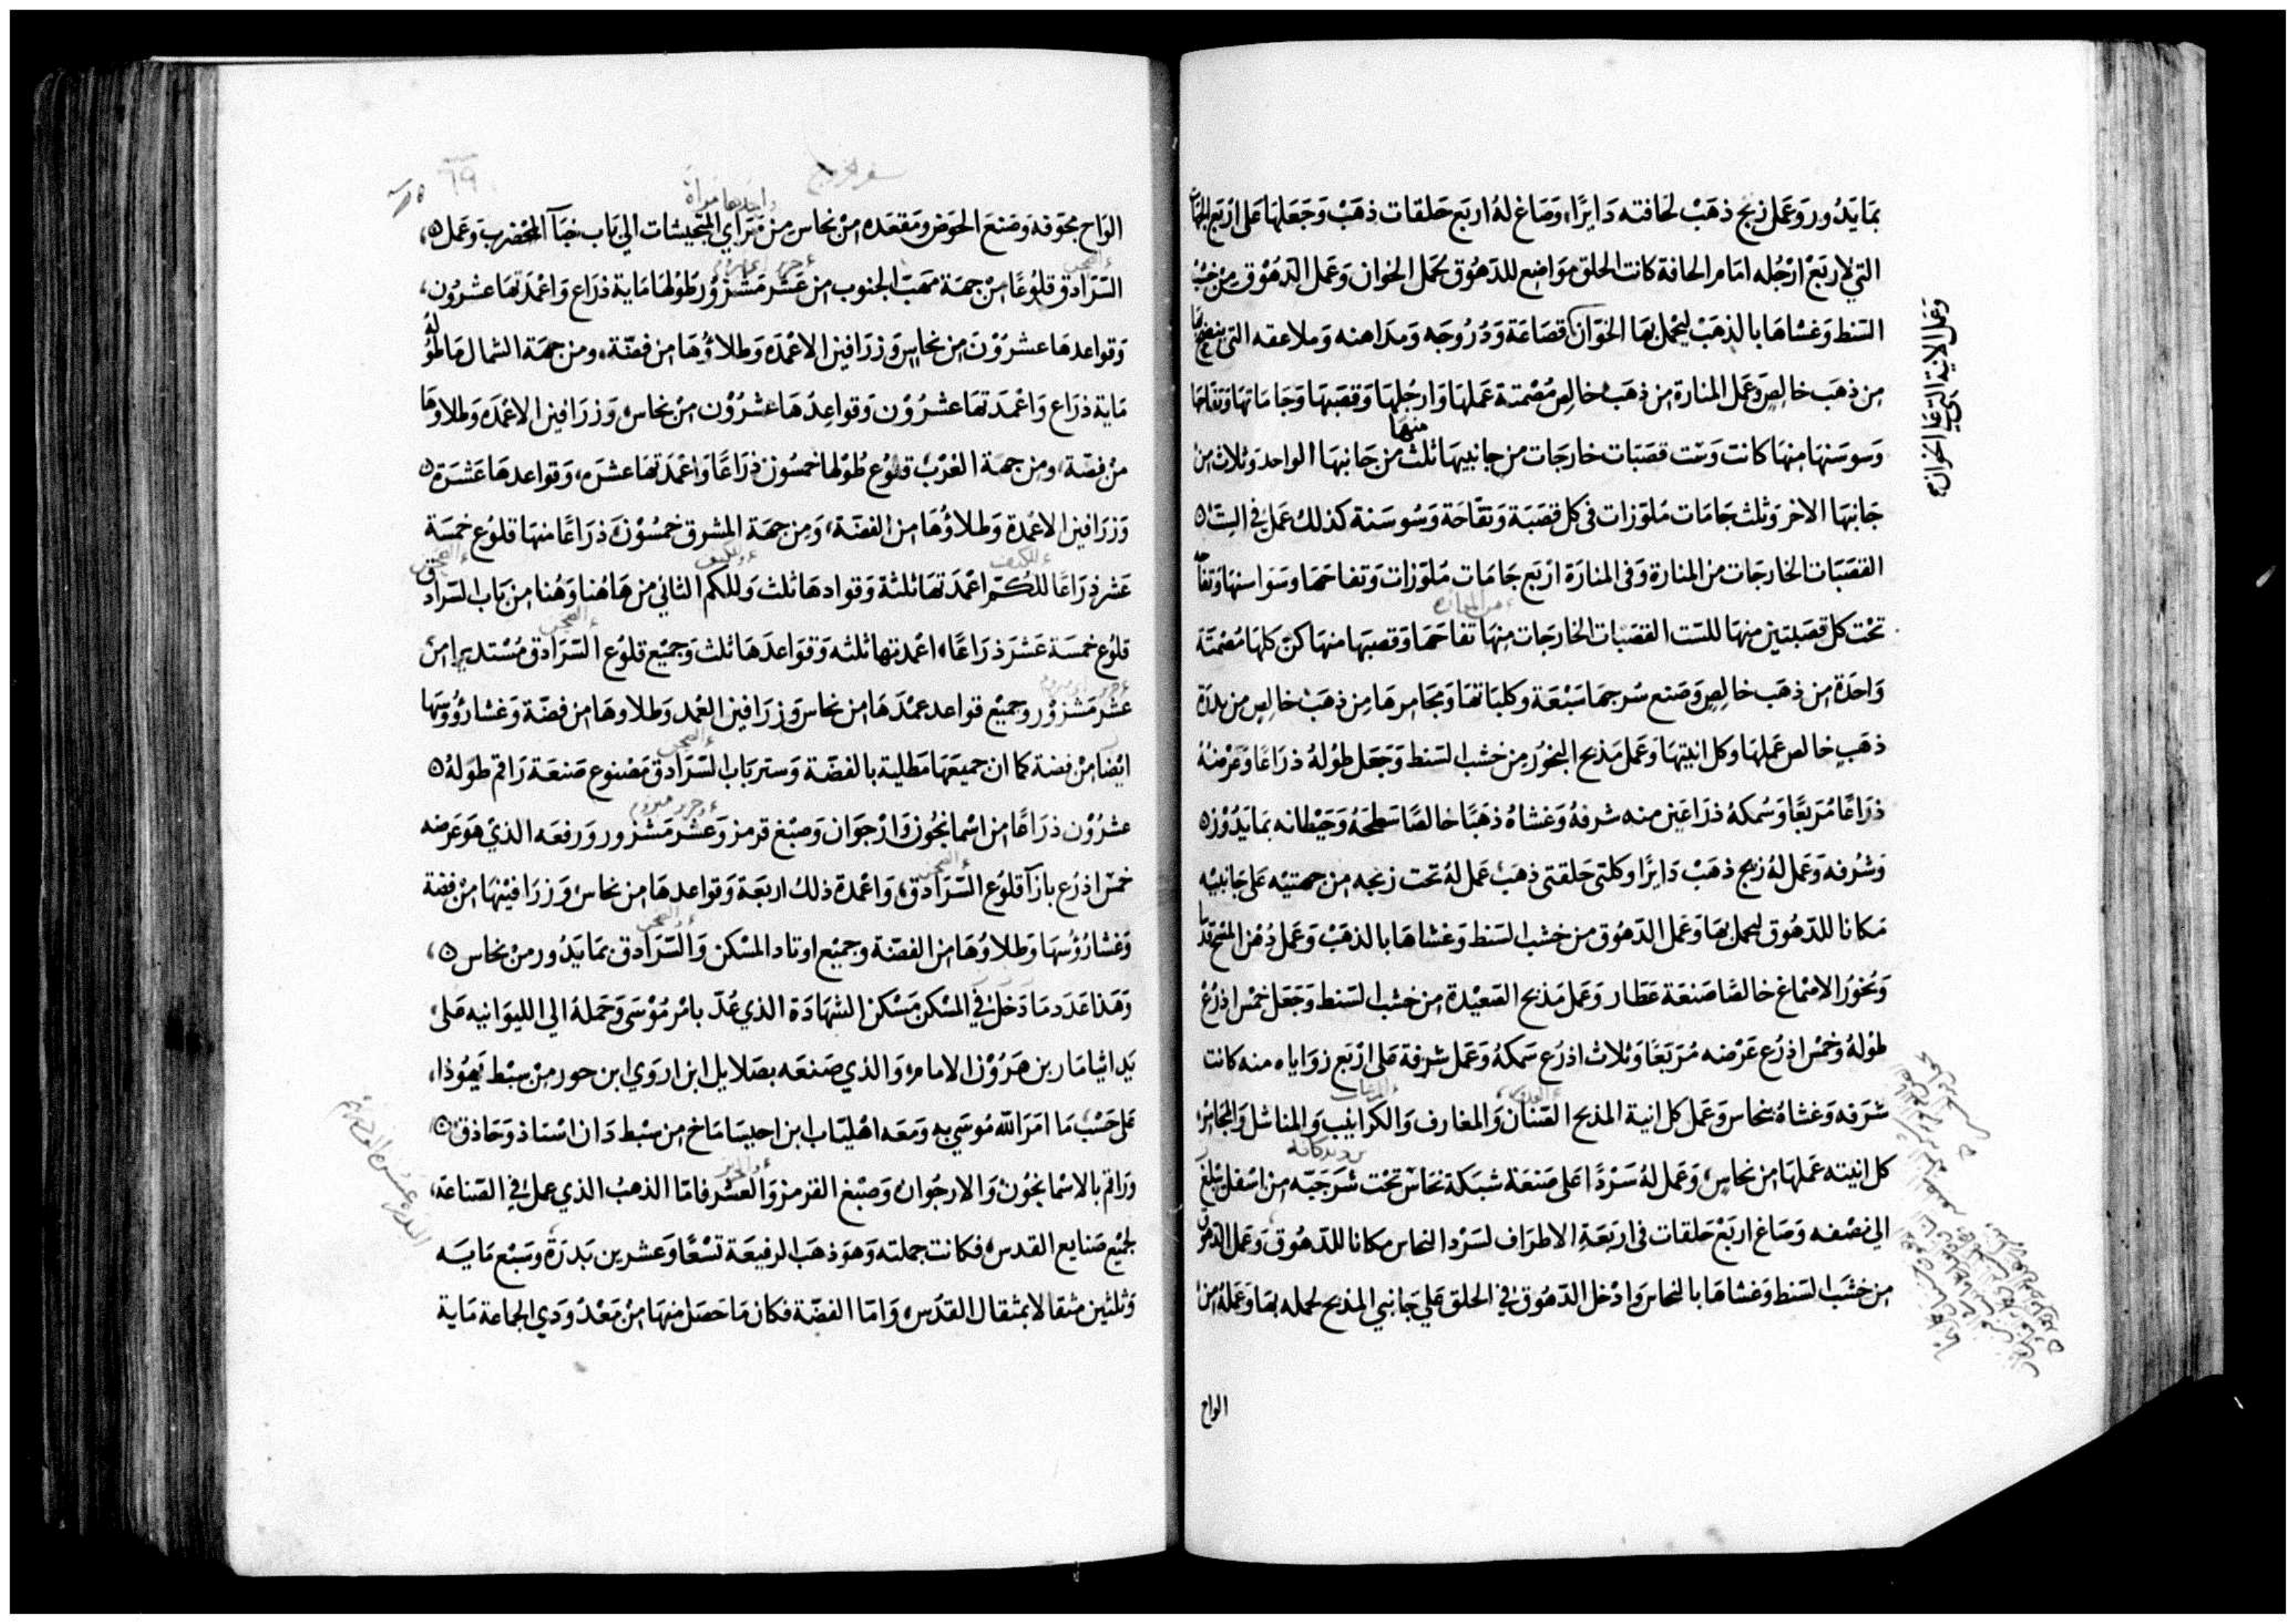 بمَا يَدُور وَعَمل زيج ذهَبْ لحافته دَايرًا، وَصَاغ لهُ اربَع حَلقات ذهَبْ وَجَعَلهَا عَلى ارْبَع الجهَات
التي لاربَعْ ارْجُله امَام الحافة كانت الحلق موَاضِع للدّهُوق لحَمل الخوَان وَعَمل الدّهُوق مِن خشبْ
السَنط وَغشاهَا بالذهَبْ ليحْمل بهَا الخوَان قصَاعَة وَدُرُوجَه وَمدَاهنه وَملاعقه التى ينضح بهَا
وَعَمل الانية التي عَلى الخوَان
من ذهَب خالِصٍ وَعَمل المنارة من ذهَبْ خالِص مُصْمتة عَملهَا وَارجُلهَا وَقصَبهَا وَجَامَاتهَا وَتفاحَهَا
وَسَوسَنهَا منهَا كانت وَستْ قصَبَات خارجَات من جانبيهَا ثلث منهَا من جَانبهَا الواحد وَثلاث من
جَانبهَا الاخر وَثلث جَامَات مَلوّزات فى كل قصَبَة وَتفّاحَة وَسُوسَنة كذلك عَمل في الستْ
القصَبَات الخارجَات من المنارة وَفى المنارَة ارْبَع جَامَات مَلوّزات وَتفاحَهَا وسَوَاسنهَا وَتفاحه
من المناره
تحْت كل قصَبتين منهَا للسَت القصَبات الخارجَات منهَا تفاحَهَا وَقصبهَا منهَا كنّ كلهَا مُصْمَتَة
وَاحدَة من ذهَب خالِصٍ وَصَنع سُرجهَا سَبْعَة وكلبَاتهَا وَمجَامرهَا مِن ذهَبْ خالِص من بدرَة
ذهَبٍ خالص عَملهَا وكل انيتهَا وَعَمل مَذبح البخوُر مِن خشب السَنط وَجَعَل طوُلهُ ذرَاعًا وَعَرْضهُ
ذرَاعًا مُرَبعًا وَسُمكهُ ذرَاعَين منه شرفهُ وَغشاهُ ذهَبًا خالصًا سَطحَهُ وَحَيْطانه بمَا يَدُوْر
وَشُرفه وَعَمل لهُ زيج ذهَبْ دَايرًا وكلتى حَلقتى ذهَبْ عَمل لهُ تحت زيجه من جهتيْه عَلى جَانبيْه
مَكانا للدّهُوق ليحمل بهَا وَعَمل الدّهُوق من خشب السَنط وَغشاهَا بالذهَبْ وَعَمل دُهْن المسْح قدسًا
وَبخوُر الاصْمَاغ خالصًا صَنعَة عَطار وَعَمل مَذبح الصَعيْدة من خشب السَنط وَجَعَل خمْس اذرُع
طوُلهُ وَخمْس اذرُع عَرْضه مُرَبَعًا وَثلاث اذرُع سَمكهُ وَعَمل شرفة عَلى ارْبَع زوَاياه منه كانت
شرَفه وَغشاهُ بنحاس وَعَمل كل انية المذبح القنان وَالمغارف وَالكرانيب وَالمناشل وَالمجَامر
كل انيته عَملهَا من نحاسٍ، وَعَمل لهُ سَرْدًا عَلى صَنعَة شبَكة نحَاسْ تحْت شرَجَبّه من اسْفل يبْلغ
الى نصْفه وَصَاغ ارَبَعْ حَلقات فى اربَعَة الاطرَاف لسَرْد النحاس مكانا للدّهُوق وَعَمل الدّهوق
من خشبَ السَنط وَغشاهَا بالنحاس وَادْخل الدّهُوق في الحلق عَلي جَانبي المذبح لحمله بهَا وَعَمَلهُ من
الواح
سفر الخروج
٦٩
وَاحدهَا مَرأة
الوَاح مجَوّفة وَصَنعَ الحوَض وَمَقعَدَه مِنْ نحاس مِن مَرَاي المتجيشات الي بَاب خبَآ المحْضر وَعَمل
السّرَادق قلوُعًا مِنْ جهَة مَهَبّ الجنوب مِن عَشْر مَشْزوُر طوُلهَا مَاية ذرَاع وَاعْمدَتهَا عشرُون،
وَقواعدهَا عشرُوْن من نحاسٍ وَزرَافين الاعْمَدَه وَطلاؤُهَا من فضّة، ومن جهَة الشمال مَا طوُله
مَاية ذرَاع وَاعْمَدَتهَا عشرُوْن وَقواعِدُهَا عشرُوْن مِنْ نحاس، وَزرَافين الاعْمَدَه وَطلاوهَا
منْ فضّة، ومِن جهَة الغرْبْ قلوُع طوُلهَا خمسُون ذرَاعًا وَاعْمَدَتهَا عشرَه، وَقواعدهَا عَشَرَة
وَزرَافين الاعْمدة وَطلاؤُهَا من الفضّة، وَمِن جهَة المشرق خمسُوْنَ ذرَاعًا منهَا قلوُع خمسَة
عَشر ذرَاعًا للكُمّ اعْمَدَتهَا ثلثة وَقواعدهَا ثلث وَللكم الثاني من هَاهُنا وَهُنا من بَاب السَرَادق
قلوُع خمسَة عَشَرَ ذرَاعًا، اعْمدتهَا ثلثه وَقوَاعدَهَا ثلث وَجميْع قلوُع السّرَادق مُسْتديرا من
عشْر مَشْزوُر وجميْع قواعد عمُدَهَا من نحاس وَزرَافين العُمد وَطلاوهَا من فضّة وَغشا رُؤُوسَهَا
ايْضا مِنْ فضة كما ان جميعَهَا مَطلية بالفضّة وَستر بَاب السّرَادق مَصْنوع صَنعَة رَاقم طوْلهُ
عشرُوْن ذرَاعًا من اسْمَانجوُن وَارْجوَان وَصبْغ قرمز وَعَشْر مَشزور وَرفعَه الذيْ هوَ عَرضه
خمسْ اذرُع بازآ قلوُع السّرَادق، وَاعْمدة ذلك اربَعَة وَقواعدهَا من نحاس، وَزرَافيْنهَا مِنْ فضة
وَغشا رُؤُسهَا وَطلاؤُهَا من الفضّة وجميْع اوتاد المسْكن وَالسّرَادق بمَا يَدُور منْ نحاس
وَهَذا عَدَد مَا دَخلَ في المسْكن مَسْكن الشهَادَة الذي عُدّ بامْر مُوْسَى وَحَملهُ الى الليوَانيه عَلى
يَد ايثامَار بن هَرُوْن الامام، وَالذي صَنعَه بصَلايل ابن اروَي ابن حور منْ سبْط يَهُوْذا،
عَلى حَسْب مَا امَرَ الله مُوسَى به وَمَعَه اهْليَاب ابن احيسَامَاخ من سبْط دَان اسْتاذ وَحَاذق
وَرَاقم بالاسْمانجوُن وَالارجوُان وَصبْغ القزمز وَالعشْر فامّا الذهبُ الذي عمل في الصّناعَة،
لجميْع صَنايع القدس، فكانت جملته وَهوَ ذهَب الرفيعَة تسْعًا وَعشرين بَدرَة وسَبْع مَايَه
وَثلثين مثقالا بمثقال القدُس، وَامّا الفضّة فكان مَا حَصَل منهَا منْ مَعْدُودي الجماعة مَاية